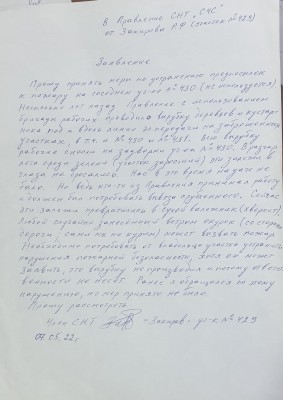 В Правление СНТ "СЧС"
от Закирова А.Ф. (участок № 429)
Заявление
Прошу принять меры по устранению предпосылок
к пожару на соседнем уч-ке № 430 (не используется).
Несколько лет назад Правление с использованием
бригады рабочих проводило вырубку деревьев и кустар-
ника под и вдоль линии эл.передачи на заброшенных
участках, в т.ч. и № 430 и № 431. Всю вырубку
рабочие снесли на задворки уч-ка № 430. В разгар
лета среди зелени (участок заросший) это зарастало в
глаза не бросалось. Нас в это время на даче не
было. Но ведь кто-то из Правления принимал работу
и должен был потребовать вывоза срубленного. Сейчас
эти завалы превратились в сухой валежник (хворост).
Любой случайно занесённый ветром окурок (со стороны
дороги, сами мы не курим) может вызвать пожар.
Необходимо потребовать от владельца участка устранить
нарушения пожарной безопасности, хотя он может
заявить, что вырубку не производил и поэтому ответст-
венности не несёт. Ранее я обращался по этому
нарушению, но мер принято не было.
Прошу рассмотреть
Член СНТ - Закиров - уч-к № 429
07.05.22 г.